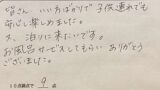 皆さん いい人ばかりで 子供連れでも
安心して楽しめました。
又、泊りに来たいです。
お風呂サービスしてもらい ありがとう
ございました。
10点満点で 9 点